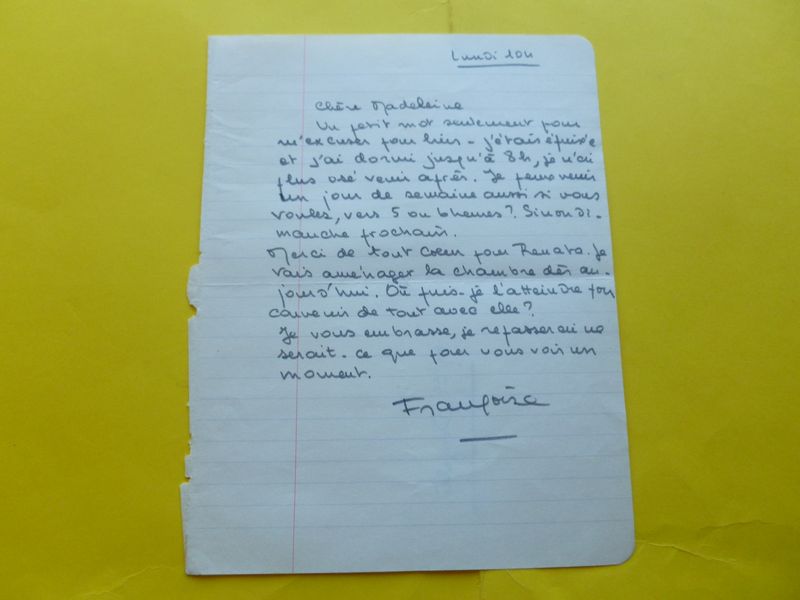 Lundi 10h
Chère Madeleine
Un petit mot seulement pour
m'excuser pour hier - j'étais épuisée
et j'ai dormi jusqu'à 8h, je n'ai
plus osé venir après. Je peux venir
un jour de semaine aussi si vous
voulez, vers 5 ou 6 heures? Sinon di-
manche prochain.
Merci de tout coeur pour Renata. Je
vais aménager la chambre dès au-
jourd'hui. Où puis-je l'atteindre pour
convenir de tout avec elle?
Je vous embrasse, je repasserai ne
serait-ce que pour vous voir un
moment.
Françoise